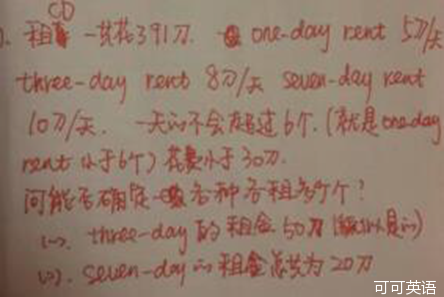 CD
租 一共花391刀. one-day rent 5刀/天
three-day rent 8刀/天 seven-day rent
10刀/天. 一天的不会超过6个.(就是one-day
rent 小于6个) 花费小于30刀.
问能否确定 各种各租多少个?
(一). three-day 的租金 50刀
(二). seven-day 的租金总共为20刀
可可英语